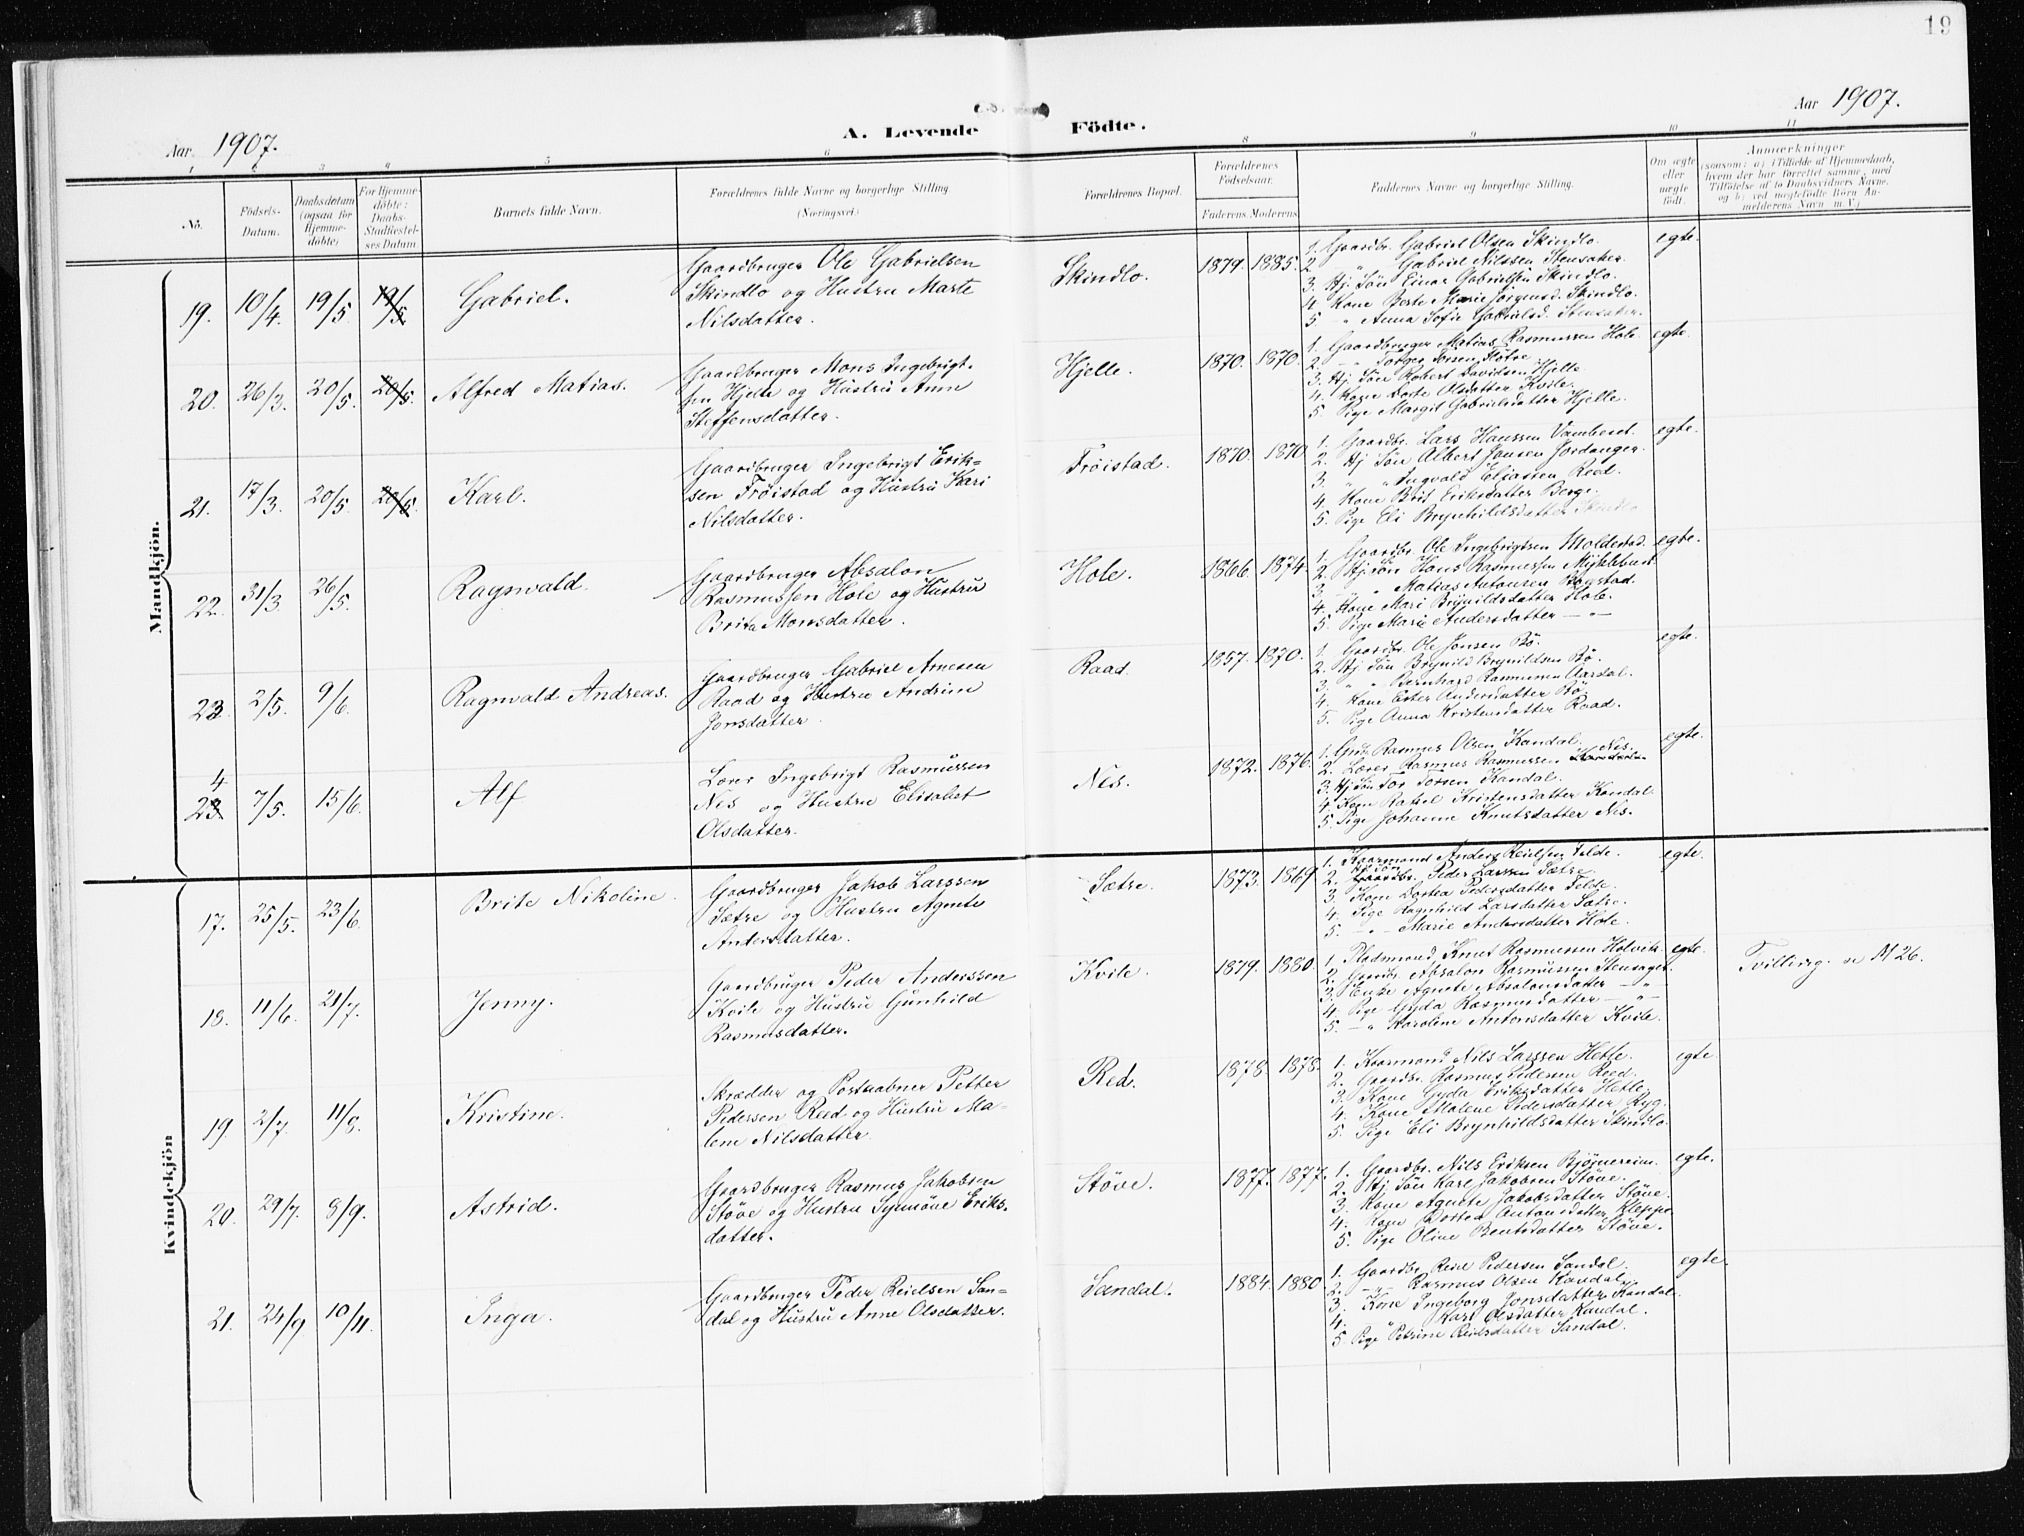 19
Aar 1907.
A. Levende Födte.
Aar 1907.
1 2 3 4 5 6 8 9 10 11
No.
Födsels-Datum.
Daabsdatum (ogsaa for Hjemme-döbte)
For Hjemme-döbte: Daabs-Stadfæstel-ses Datum
Barnets fulde Navn.
Forældrenes fulde Navne og borgerlige Stilling
(Næringsvei.)
Forældrenes Bopæl.
Forældrenes Födselsaar.
Faderens. Moderens.
Faddernes Navne og borgerlige Stilling.
Om ægte eller uægte født.
Anmærkninger
(saasom: a) i Tilfælde af Hjemmedaab,
hvem der har forrettet samme, med
Tilföielse af to Daabsvidners Navne.
og b) ved uægtefödte Börn An-
melderens Navn m. V.)
Mandkjön.
19. 10/4. 19/5. 19/5 Gabriel.
Gaardbruger Ole Gabrielsen
Skindlo og Hustru Marte
Nilsdatter.
Skindlo. 1879. 1885.
1. Gaardbr. Gabriel Olsen Skindlo.
2. " Gabriel Nilssen Stensaker.
3. Hj. Søn Einar Gabrielsen Skindlo.
4. Kone Berte Marie Jørgensd. Skindlo.
5. " Anna Sofie Gabrielsd. Stensaker.
egte.
20. 26/3. 20/5. 20/5. Alfred Matias.
Gaardbruger Mons Ingebrigt-
sen Hjelle og Hustru Ann
Steffensdatter.
Hjelle. 1870. 1870.
1. Gaardbruger Matias Rasmussen Hole.
2. Torger Torsen Støtre
3. Hj. Søn Robert Davidsen Hjelle.
4. Kone Dorte Olsdatter Kvile.
5. Pige Margit Gabrielsdatter Hjelle.
egte.
21. 17/3. 20/5. 20/5. Karl.
Gaardbruger Ingebrigt Erik-
sen Frøistad og Hustru Kari
Nilsdatter.
Frøistad. 1870. 1870
1. Gaardbr. Lars Hanssen Vambeset.
2. Hj Søn Albert Jansen Jordanger.
3. " " Ingvald Eliassen Reed.
4. Kone Brit Eriksdatter Berge.
5. Pige Eli Brynhildsdatter Skindlo
egte.
22. 31/3. 26/5. Ragnvald.
Gaardbruger Absalon
Rasmussen Hole og Hustru
Brita Monsdatter.
Hole. 1866. 1874.
1. Gaardbr. Ole Ingebrigtsen Moldestad.
2. Hj. Søn Hans Rasmussen Myklebust
3. " " Matias Antonsen Bogstad.
4. Kone Mari Brynildsdatter Hole.
5. Pige Marie Andersdatter — " —
egte.
23. 2/5. 9/6. Ragnvald Andreas.
Gaardbruger Gabriel Arnesen
Raad og Hustru Andrine
Jonsdatter.
Raad. 1857. 1870.
1. Gaardbr. Ole Jonsen Bø.
2. Hj Søn Brynild Brynildsen Bø.
3. " " Bernhard Rasmussen Aardal.
4. Kone Ester Andersdatter Bø.
5. Pige Anna Kristensdatter Raad.
egte.
4
23 7/5. 15/6. Alf
Lærer Ingebrigt Rasmussen
Nes og Hustru Elisabet
Olsdatter.
Nes. 1872. 1876.
1. Grdbr. Rasmus Olsen Kandal.
2. Lærer Rasmus Rasmussen Nes.
3. Hj. Søn Tor Torsen Kandal.
4. Kone Rakel Kristensdatter Kandal.
5. Pige Johanne Knutsdatter Nes.
egte.
Kvindekjön
17. 25/5. 23/6. Brite Nikoline.
Gaardbruger Jakob Larssen
Sætre og Hustru Agnete
Andersdatter.
Sætre. 1873. 1869
1. Kaarmand Anders Reielsen Felde.
2. Hj. Søn Peder Larssen Sætre
3. Kone Dortea Pedersdatter Felde.
4. Pige Ragnhild Larsdatter Sætre.
5. — " — Marie Andersdatter Hole
egte.
18. 11/6. 21/7. Jenny.
Gaardbruger Peder Anderssen
Kvile og Hustru Gunhild
Rasmusdatter.
Kvile. 1879. 1880.
1. Pladsmand Knut Rasmussen Holvik.
2. Gaardbr. Absalon Rasmussen Stensager.
3. Enke Agnete Absalonsdatter — " —
4. Pige Gyda Rasmusdatter — " —
5. — " Karoline Antonsdatter Kvile.
egte.
Tvilling. se M 26.
19. 2/7. 11/8. Kristine.
Skrædder og Postaabner Petter
Pedersen Reed og Hustru Ma-
lene Nilsdatter.
Red. 1878. 1878.
1. Kaarmand Nils Larssen Hetle.
2. Gaardbr. Rasmus Pedersen Reed.
3. Kone Gyda Eriksdatter Hetle.
4. Kone Malene Pedersdatter Ryg.
5. Pige Eli Brynhildsdatter Skindlo.
egte
20. 29/7. 8/9. Astrid.
Gaardbruger Rasmus Jakobsen
Støve og Hustru Synnøve Eriks-
datter.
Støve. 1877. 1877.
1. Gaardbr. Nils Eriksen Bjørnereim.
2. Hj Søn Karl Jakobsen Støve.
3. Kone Agnete Jakobsdatter Støve.
4. Kone Dortea Antonsdatter Kleppe
5. Pige Oline Bentsdatter Støve.
egte.
21. 24/9 10/11. Inga.
Gaardbruger Peder Reielsen San-
dal og Hustru Anne Olsdatter.
Sandal. 1884. 1880
1. Gaardbr Reiel Pedersen Sandal.
2. — " — Rasmus Olsen Kandal.
3. Kone Ingeborg Jonsdatter Kandal.
4. " Kari Olsdatter Kandal.
5 Pige Petrine Reielsdatter Sandal.
egte.